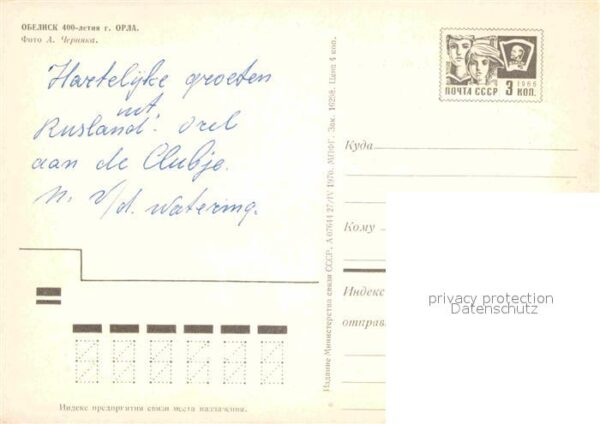 ОБЕЛИСК 400-летия г. ОРЛА.
Фото А. Черника.
Hartelijke groeten
uit
Rusland. Orel
aan de Clubje.
N. v/d. Watering.
Издание Министерства связи СССР. А 07644 27/IV 1970. МПФГ. Зак. 16298. Цена 4 коп.
ПОЧТА СССР 3 КОП.
1966
Куда
Кому
Индекс
отправ
privacy protection
Datenschutz
Индекс предприятия связи места назначения.